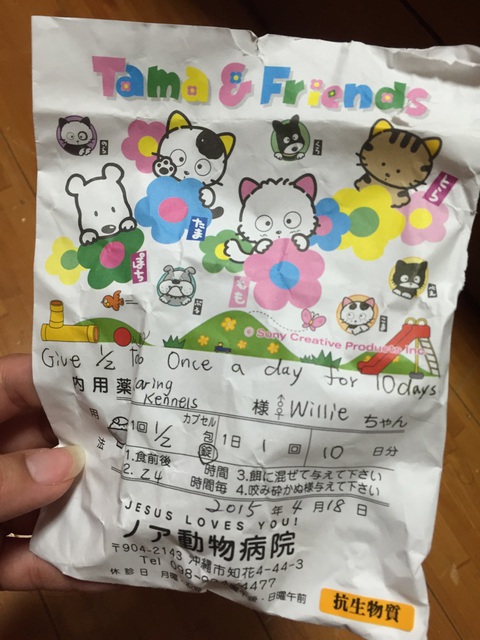 Tama & Friends
のら
くろ
とら
たま
ぽち
もも
ぶる
こま
© Sony Creative Products Inc.
Give 1/2 to Once a day for 10days
内用薬
aring
Kennels
様 Willie ちゃん
用法
1回 1/2 カプセル 包 錠 1日 1 回 10 日分
1.食前後 時間 3.餌に混ぜて与えて下さい
2. 24 時間毎 4.咬み砕かぬ様与えて下さい
2015 年 4 月 18 日
JESUS LOVES YOU!
ノア動物病院
〒904-2143 沖縄市知花4-44-3
Tel 098-
4477
休診日 月曜
・日曜午前
抗生物質